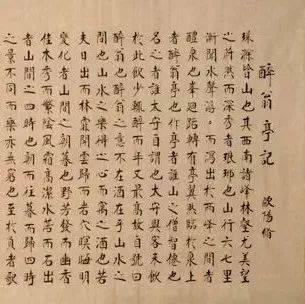 醉翁亭記 歐陽脩
環滁皆山也其西南諸峰林壑尤美望
之蔚然而深秀者琅邪也山行六七里
漸聞水聲潺々而瀉出於兩峰之間者
釀泉也峯迴路轉有亭翼然臨於泉上
者醉翁亭也作亭者誰山之僧智僊也
名之者誰太守自謂也太守與客來飲
於此飲少輒醉而年又最高故自號曰
醉翁也醉翁之意不在酒在乎山水之
間也山水之樂得之心而寓之酒也若
夫日出而林霏開雲歸而岩穴暝晦明
變化者山間之朝暮也野芳發而幽香
佳木秀而繁陰風霜高潔水落而石出
者山間之四時也朝而往暮而歸四時
之景不同而樂亦無窮也至於負者歌